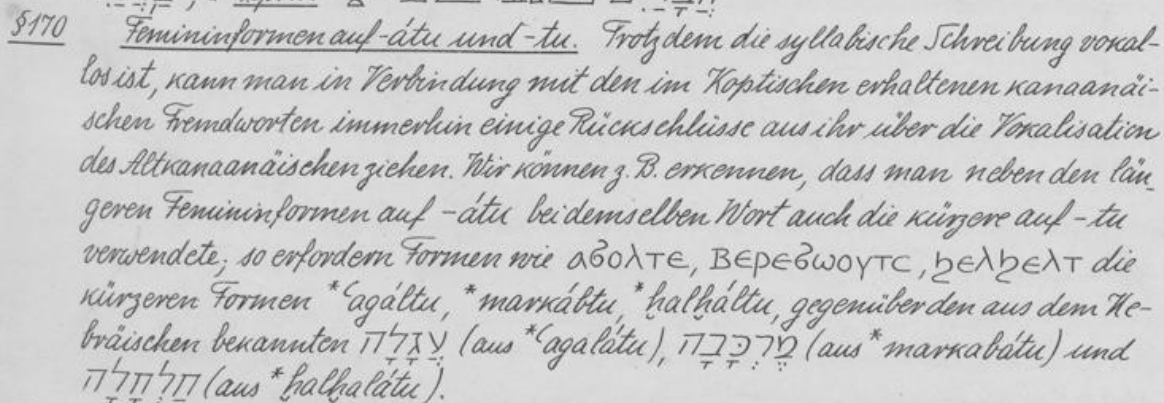 §170 Femininformen auf -átu und -tu. Trotzdem die syllabische Schreibung vokal-
los ist, kann man in Verbindung mit den im Koptischen erhaltenen kanaanäi-
schen Fremdworten immerhin einige Rückschlüsse aus ihr über die Vokalisation
des Altkanaanäischen ziehen. Wir können z. B. erkennen, dass man neben den län-
geren Femininformen auf -átu bei demselben Wort auch die kürzere auf -tu
verwendete; so erfordern Formen wie ⲁϭⲟⲗⲧⲉ, ⲃⲉⲣⲉϭⲱⲟⲩⲧⲥ, ϧⲉⲗϧⲉⲗⲧ die
kürzeren Formen *ʿagáltu, *markábtu, *ḫalḫáltu, gegenüber den aus dem He-
bräischen bekannten עֲגָלָה (aus *ʿagalátu), מֶרְכָּבָה (aus *markabátu) und
חַלְחָלָה (aus *ḫalḫalátu).